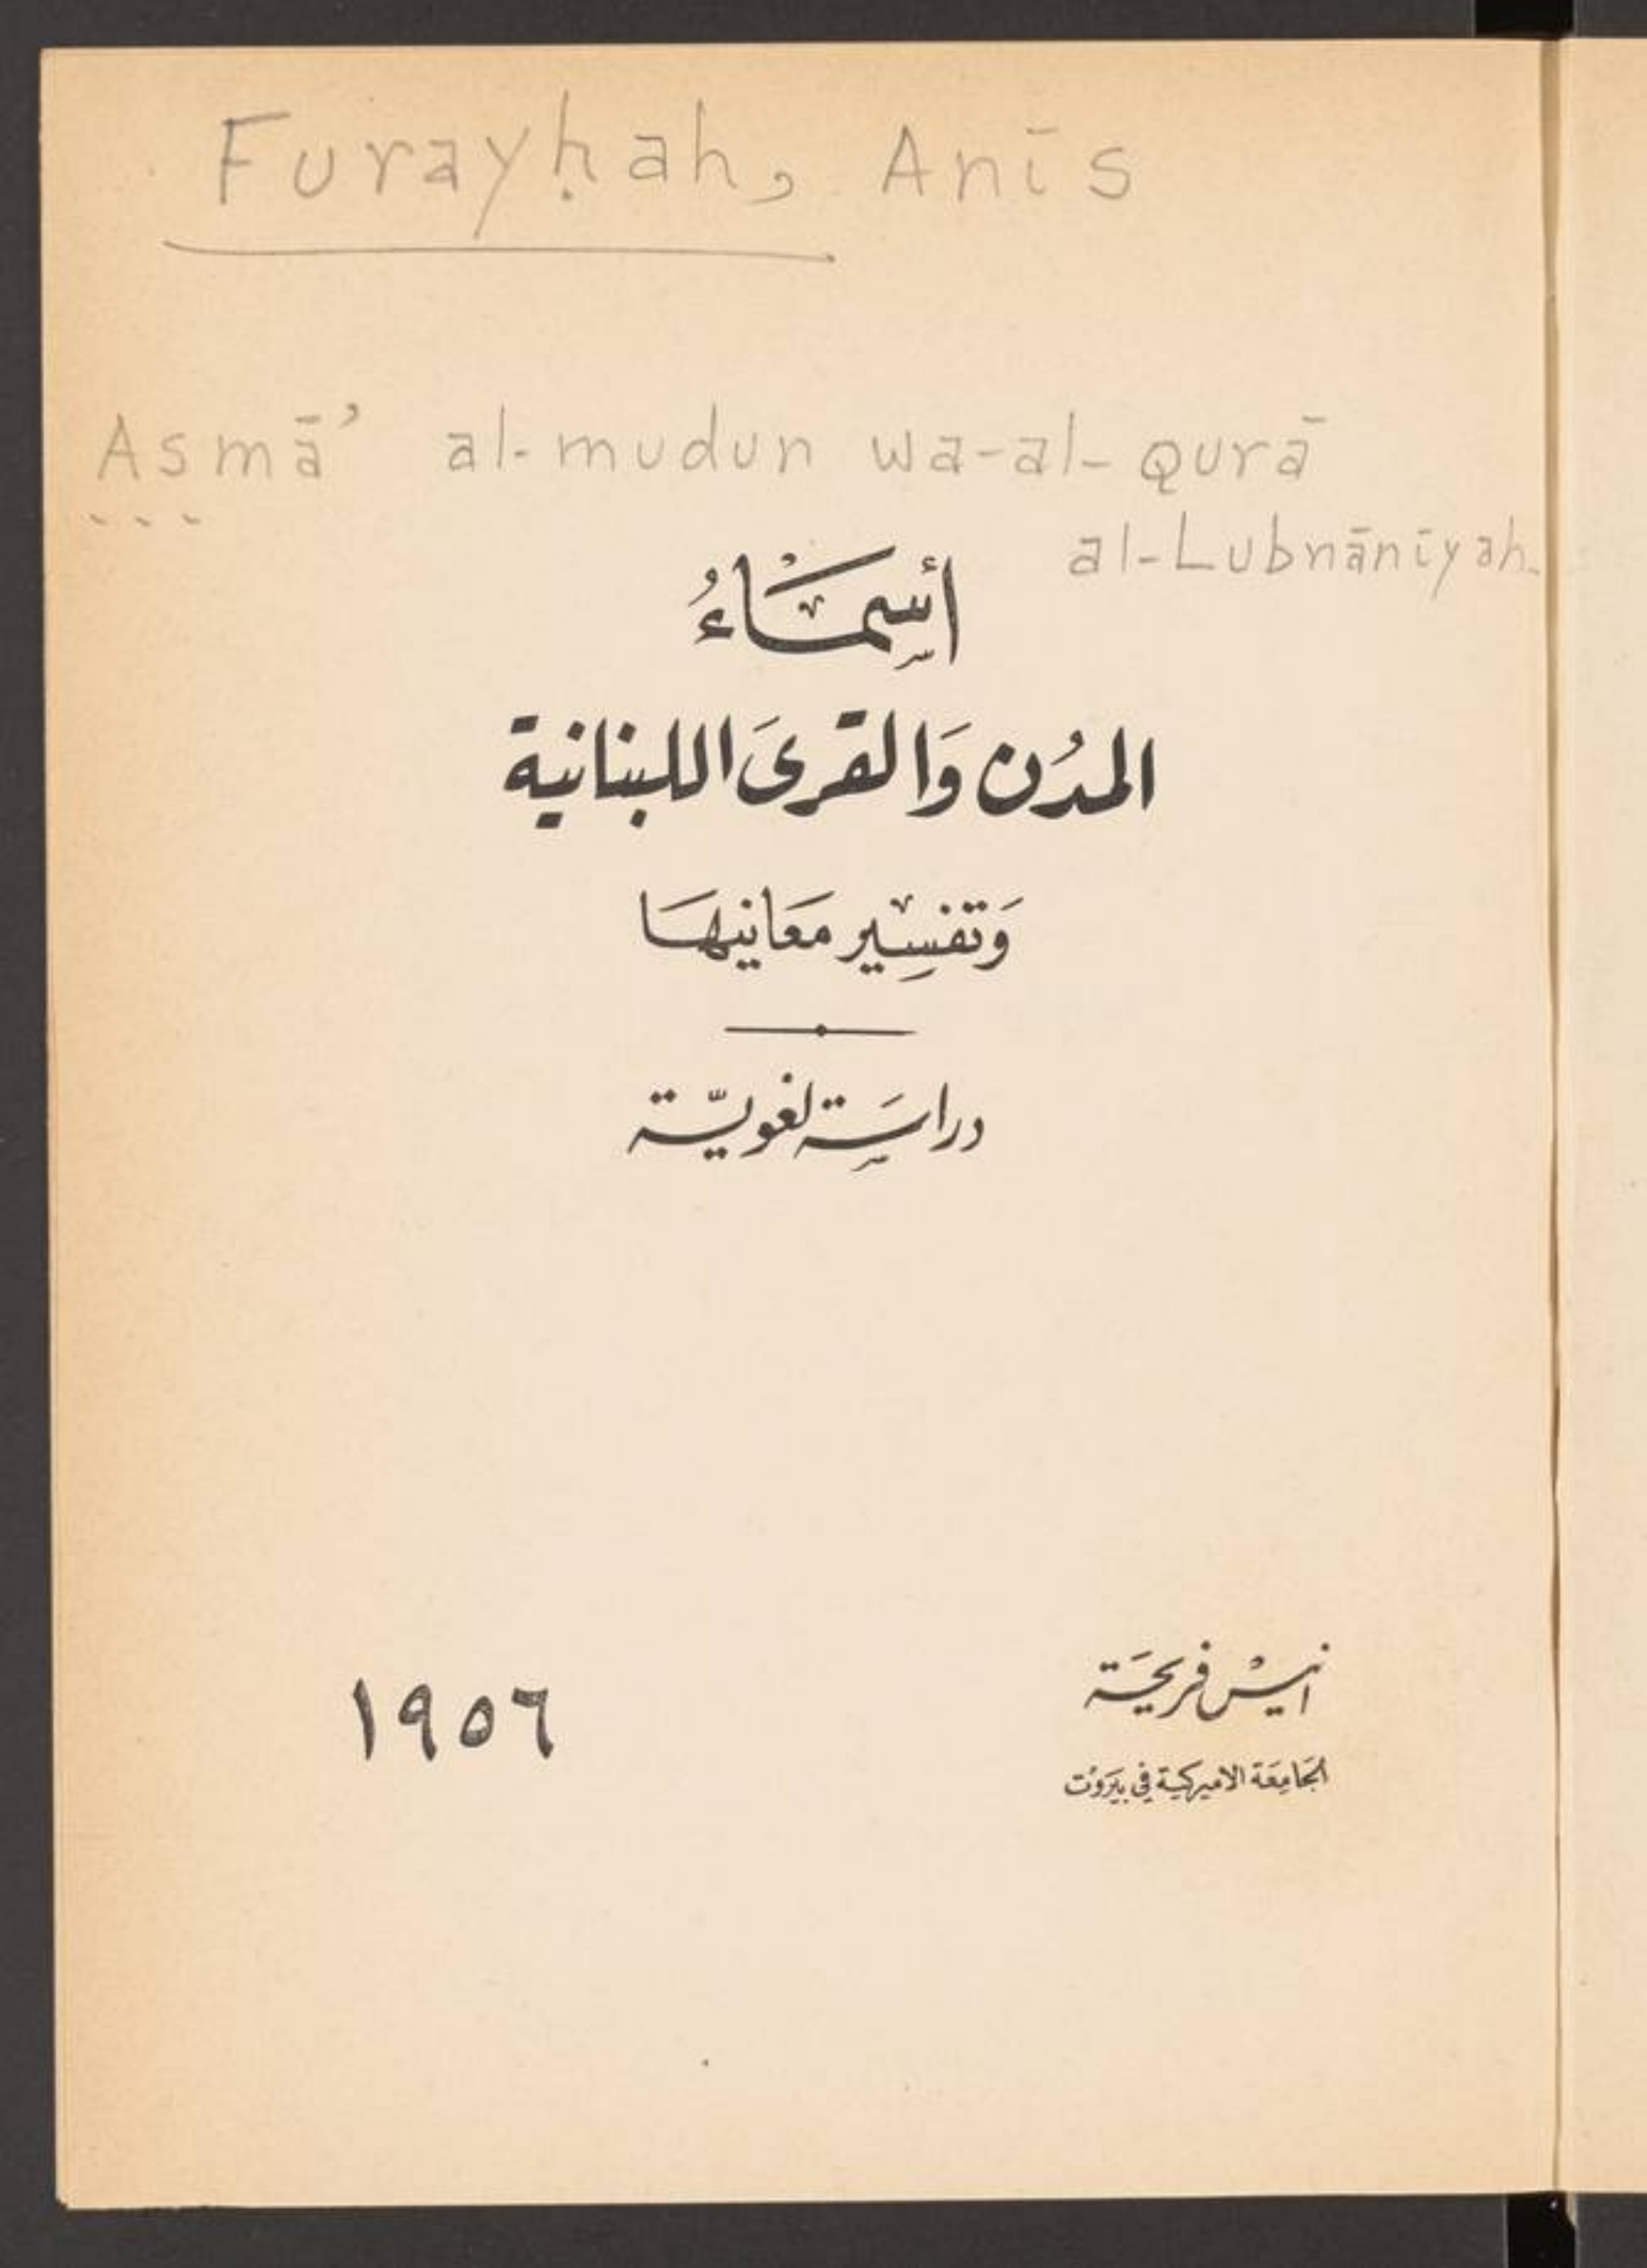 Furayḥah, Anīs
Asmā' al-mudun wa-al-qurā
al-Lubnānīyah.
أسِمَاءُ
المدُن وَالقرىَ اللبنانية
وَتفسِير معَانيهَا
دراسَِة لغويّة
انيسْ فريحَة
الجَامِعَة الاميركية في بَيروُت
١٩٥٦